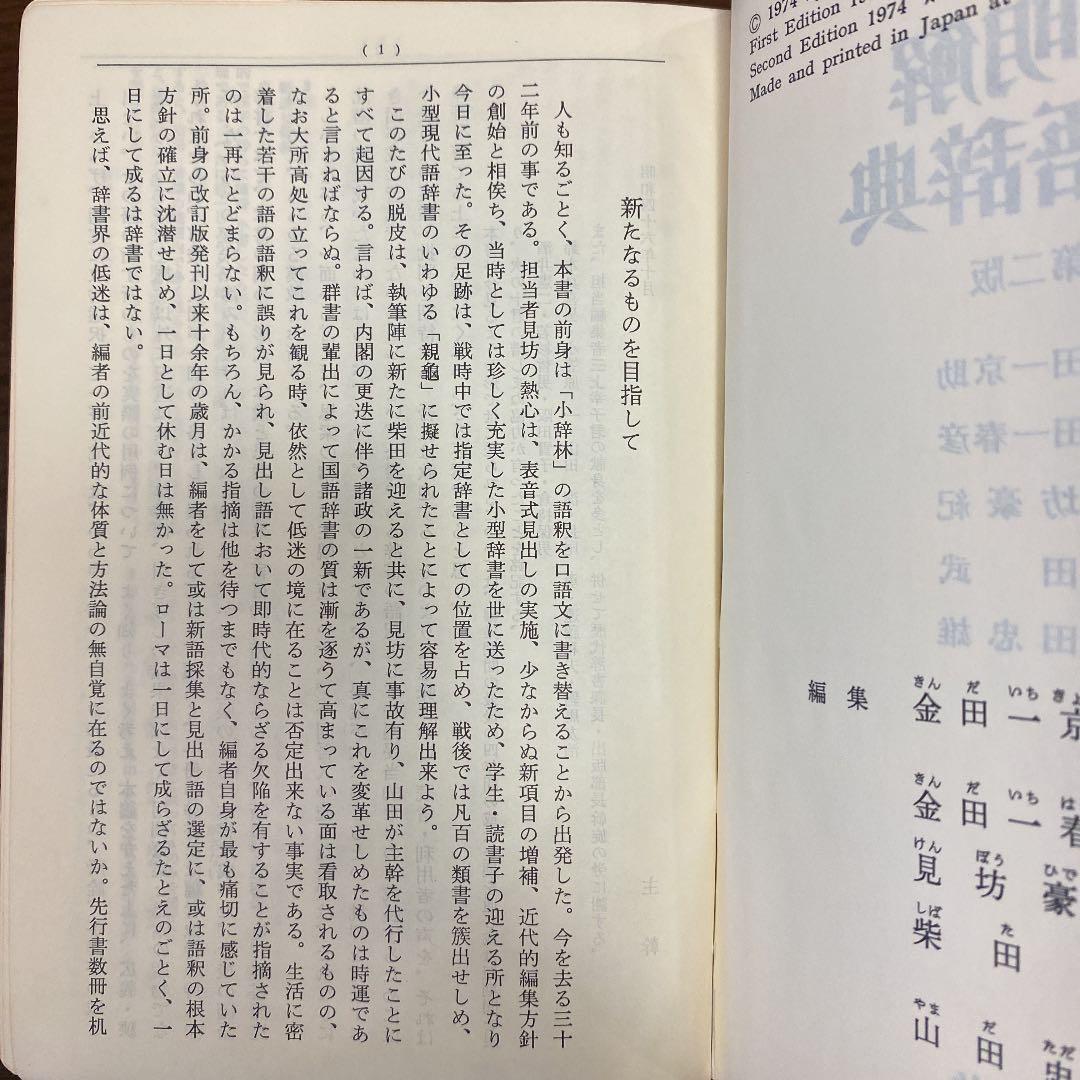 © 1974
First Edition
Second Edition 1974
Made and printed in Japan at
明解
語辞典
第二版
田一京助
田一春彦
坊豪紀
田武
田忠雄
編集
きん だ いち きょ
金田一京
きん だ いち は
金田一春
けん ぼう ひで
見坊豪
しば た
柴田
やま だ ただ
山田忠
(1)
新たなるものを目指して
人も知るごとく、本書の前身は「小辞林」の語釈を口語文に書き替えることから出発した。今を去る三十
二年前の事である。担当者見坊の熱心は、表音式見出しの実施、少なからぬ新項目の増補、近代的編集方針
の創始と相俟ち、当時としては珍しく充実した小型辞書を世に送ったため、学生・読書子の迎える所となり
今日に至った。その足跡は、戦時中では指定辞書としての位置を占め、戦後では凡百の類書を簇出せしめ、
小型現代語辞書のいわゆる「親亀」に擬せられたことによって容易に理解出来よう。
このたびの脱皮は、執筆陣に新たに柴田を迎えると共に、見坊に事故有り、山田が主幹を代行したことに
すべて起因する。言わば、内閣の更迭に伴う諸政の一新であるが、真にこれを変革せしめたものは時運であ
ると言わねばならぬ。群書の輩出によって国語辞書の質は漸を逐うて高まっている面は看取されるものの、
なお大所高処に立ってこれを観る時、依然として低迷の境に在ることは否定出来ない事実である。生活に密
着した若干の語の語釈に誤りが見られ、見出し語において即時代的ならざる欠陥を有することが指摘された
のは一再にとどまらない。もちろん、かかる指摘は他を待つまでもなく、編者自身が最も痛切に感じていた
所。前身の改訂版発刊以来十余年の歳月は、編者をして或は新語採集と見出し語の選定に、或は語釈の根本
方針の確立に沈潜せしめ、一日として休む日は無かった。ローマは一日にして成らざるたとえのごとく、一
日にして成るは辞書ではない。
思えば、辞書界の低迷は、編者の前近代的な体質と方法論の無自覚に在るのではないか。先行書数冊を机